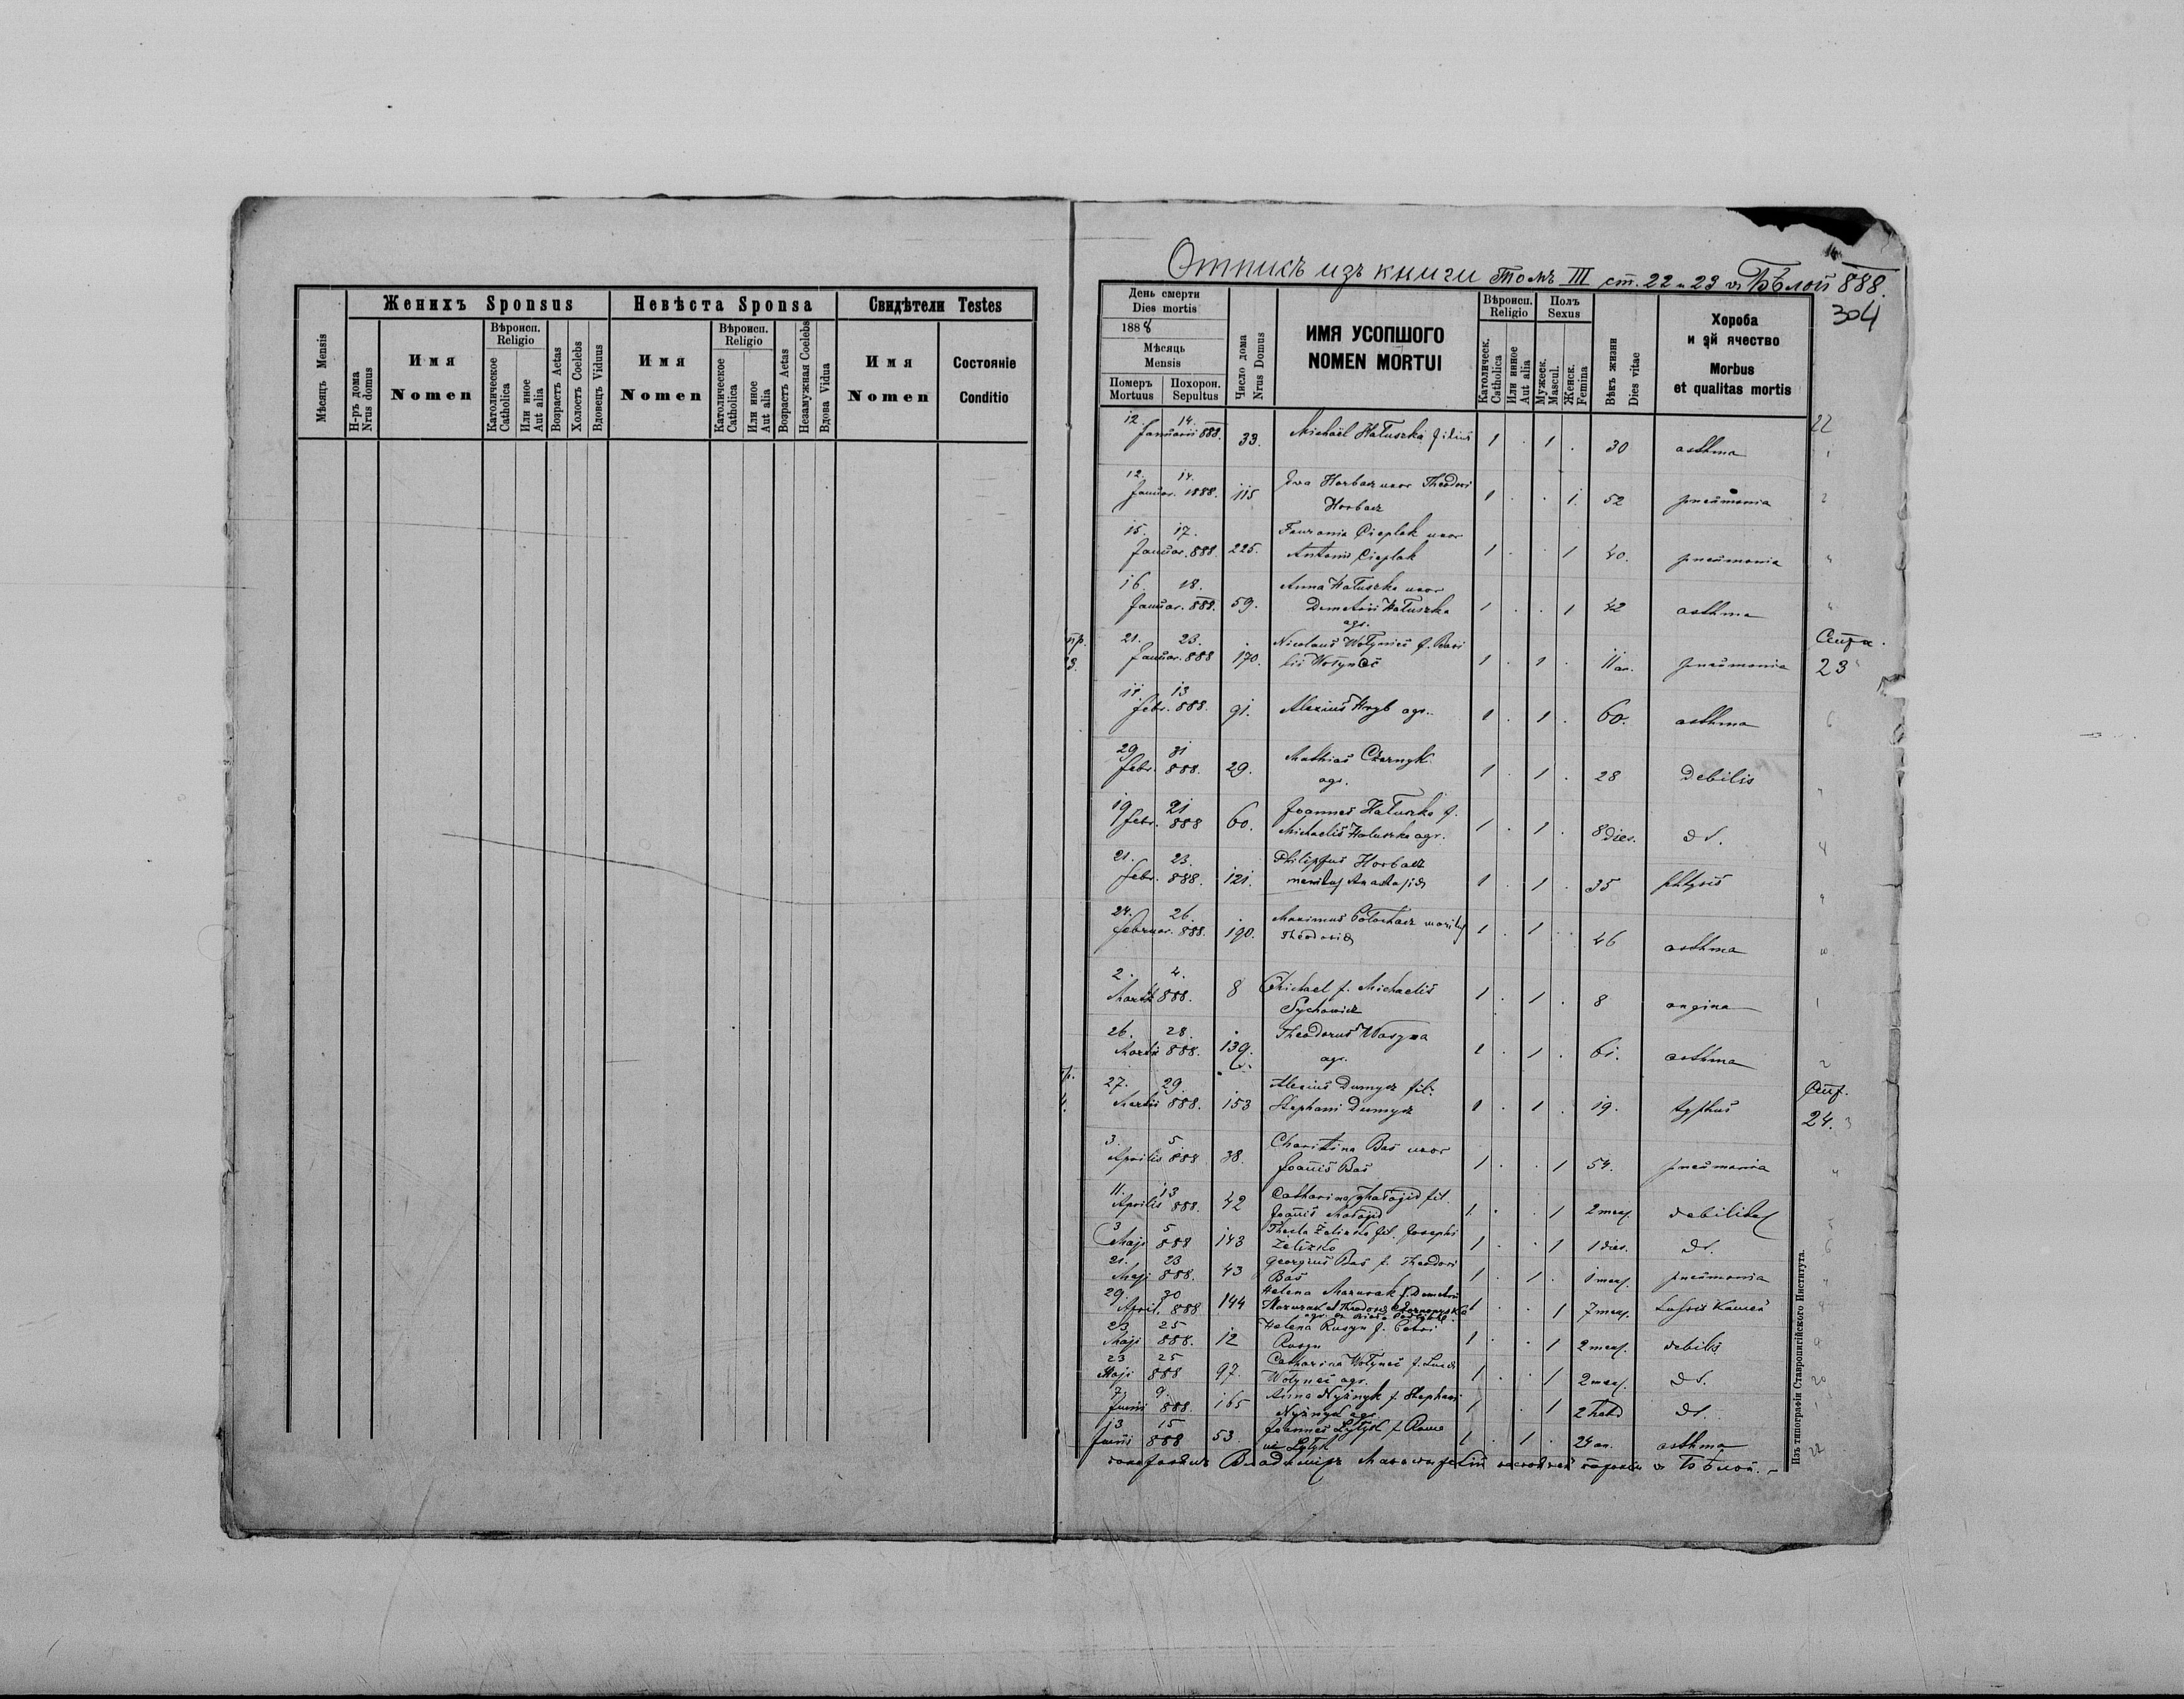 Женихъ Sponsus
Невѣста Sponsa
Свидѣтели Testes
Мѣсяцъ Mensis
Н-ръ дома
Nrus domus
Имя
Nomen
Вѣроисп.
Religio
Католическое
Catholica
Или иное
Aut alia
Возрастъ Aetas
Холостъ Coelebs
Вдовецъ Viduus
Имя
Nomen
Вѣроисп.
Religio
Католическое
Catholica
Или иное
Aut alia
Возрастъ Aetas
Незамужная Coelebs
Вдова Vidua
Имя
Nomen
Состояніе
Conditio
Отпикъ изъ книги Томъ III ст. 22 и 23 въ Бѣлой 888.
304
День смерти
Dies mortis
1888
Мѣсяць
Mensis
Померъ
Mortuus
Похорон.
Sepultus
Число дома
Nrus Domus
ИМЯ УСОПШОГО
NOMEN MORTUI
Вѣроисп.
Religio
Католическ.
Catholica
Или инное
Aut alia
Полъ
Sexus
Мужеск.
Mascul.
Женск.
Femina
Вѣкъ жизни
Dies vitae
Хороба
и эй ячество
Morbus
et qualitas mortis
22
12. 14.
Januarii 888. 33. Michaël Hałuszka filius 1 . 1 . 30 asthma
12. 14. Ewa Horbacz uxor Theodori
Januar. 1888. 115 Horbacz 1 . . 1. 52 pneumonia
15. 17. Cieplak uxor
Januar. 888. 225. Antonii Cieplak 1 . . 1 40. pneumonia
16. 18. Anna Hałuszka uxor
Januar. 888. 59. Demetrii Hałuszka 1 . . 1 42 asthma
agr.
21. 23. Nicolaus Wołyniec f. Basi
Januar. 888 170. lii Wołynec 1 . 1 . 11 an. pneumonia 23
11. 13
Febr. 888. 91. Alexius Hryb agr. 1 . 1 . 60. asthma
29 31 Mathias Czornyk
Febr. 888. 29. agr. 1 . 1 . 28 Debilis
19 21 Joannes Hałuszka f.
Febr. 888 60. Michaelis Hałuszka agr. 1 . 1 . 8 dies. dt.
21. 23. Philippus Horbacz
Febr. 888. 121. maritus Anastasiæ 1 . 1 . 35 phtysis
24. 26. Maximus maritus
Februar. 888. 190. Theodoriæ 1 . 1 . 46 asthma
2. 4. Michael f. Michaelis
Martii 888. 8 Sychowicz 1 . 1 . 8 angina
26. 28. Theodorus
Martii 888. 139. agr. 1 . 1 . 61. asthma
27. 29 Alexius Dumycz fil.
Martii 888. 153 Stephani Dumycz 1 . 1 . 19. typhus 24.
3. 5. Charitina Bas uxor
Aprilis 888 38. Joannis Bas 1 . . 1 54. pneumonia
11. 13 Catharina fil.
Aprilis 888. 42 Joannis 1. . . 1 2 mens. debilitas
3 5 Thecla fil. Josephi
Maji 888 143 Zelizko 1 . . 1 1 dies. dt.
21. 23 Georgius Bas f. Theodori
Maji 888. 43 Bas 1 . 1 . 1 mens. pneumonia
29. 30 Helena Mazurak f. Demetrii
April. 888 144 Mazurak et Theodoræ 1 . . 1 7 mens.
23 25 Helena Rusyn f. Petri
Maji 888. 12 Rusyn 1 . . 1 2 mens. debilis
23 25 Catharina Wołynec f. Lucæ
Maji 888 97. Wołynec agr. 1 . . 1 2 mens. dt.
7 9. Anna Nyżnyk f. Stephani
Junii 888. 165 Nyżnyk agr. 1 . . 1 2 hebd dt.
13 15 Joannes Łytyk f. Roma
Junii 888 53. ni Łytyk 1 . 1 . 24 an. asthma
Владимиръ въ Бѣлой.
Изъ типографіи Ставропигійского Института.